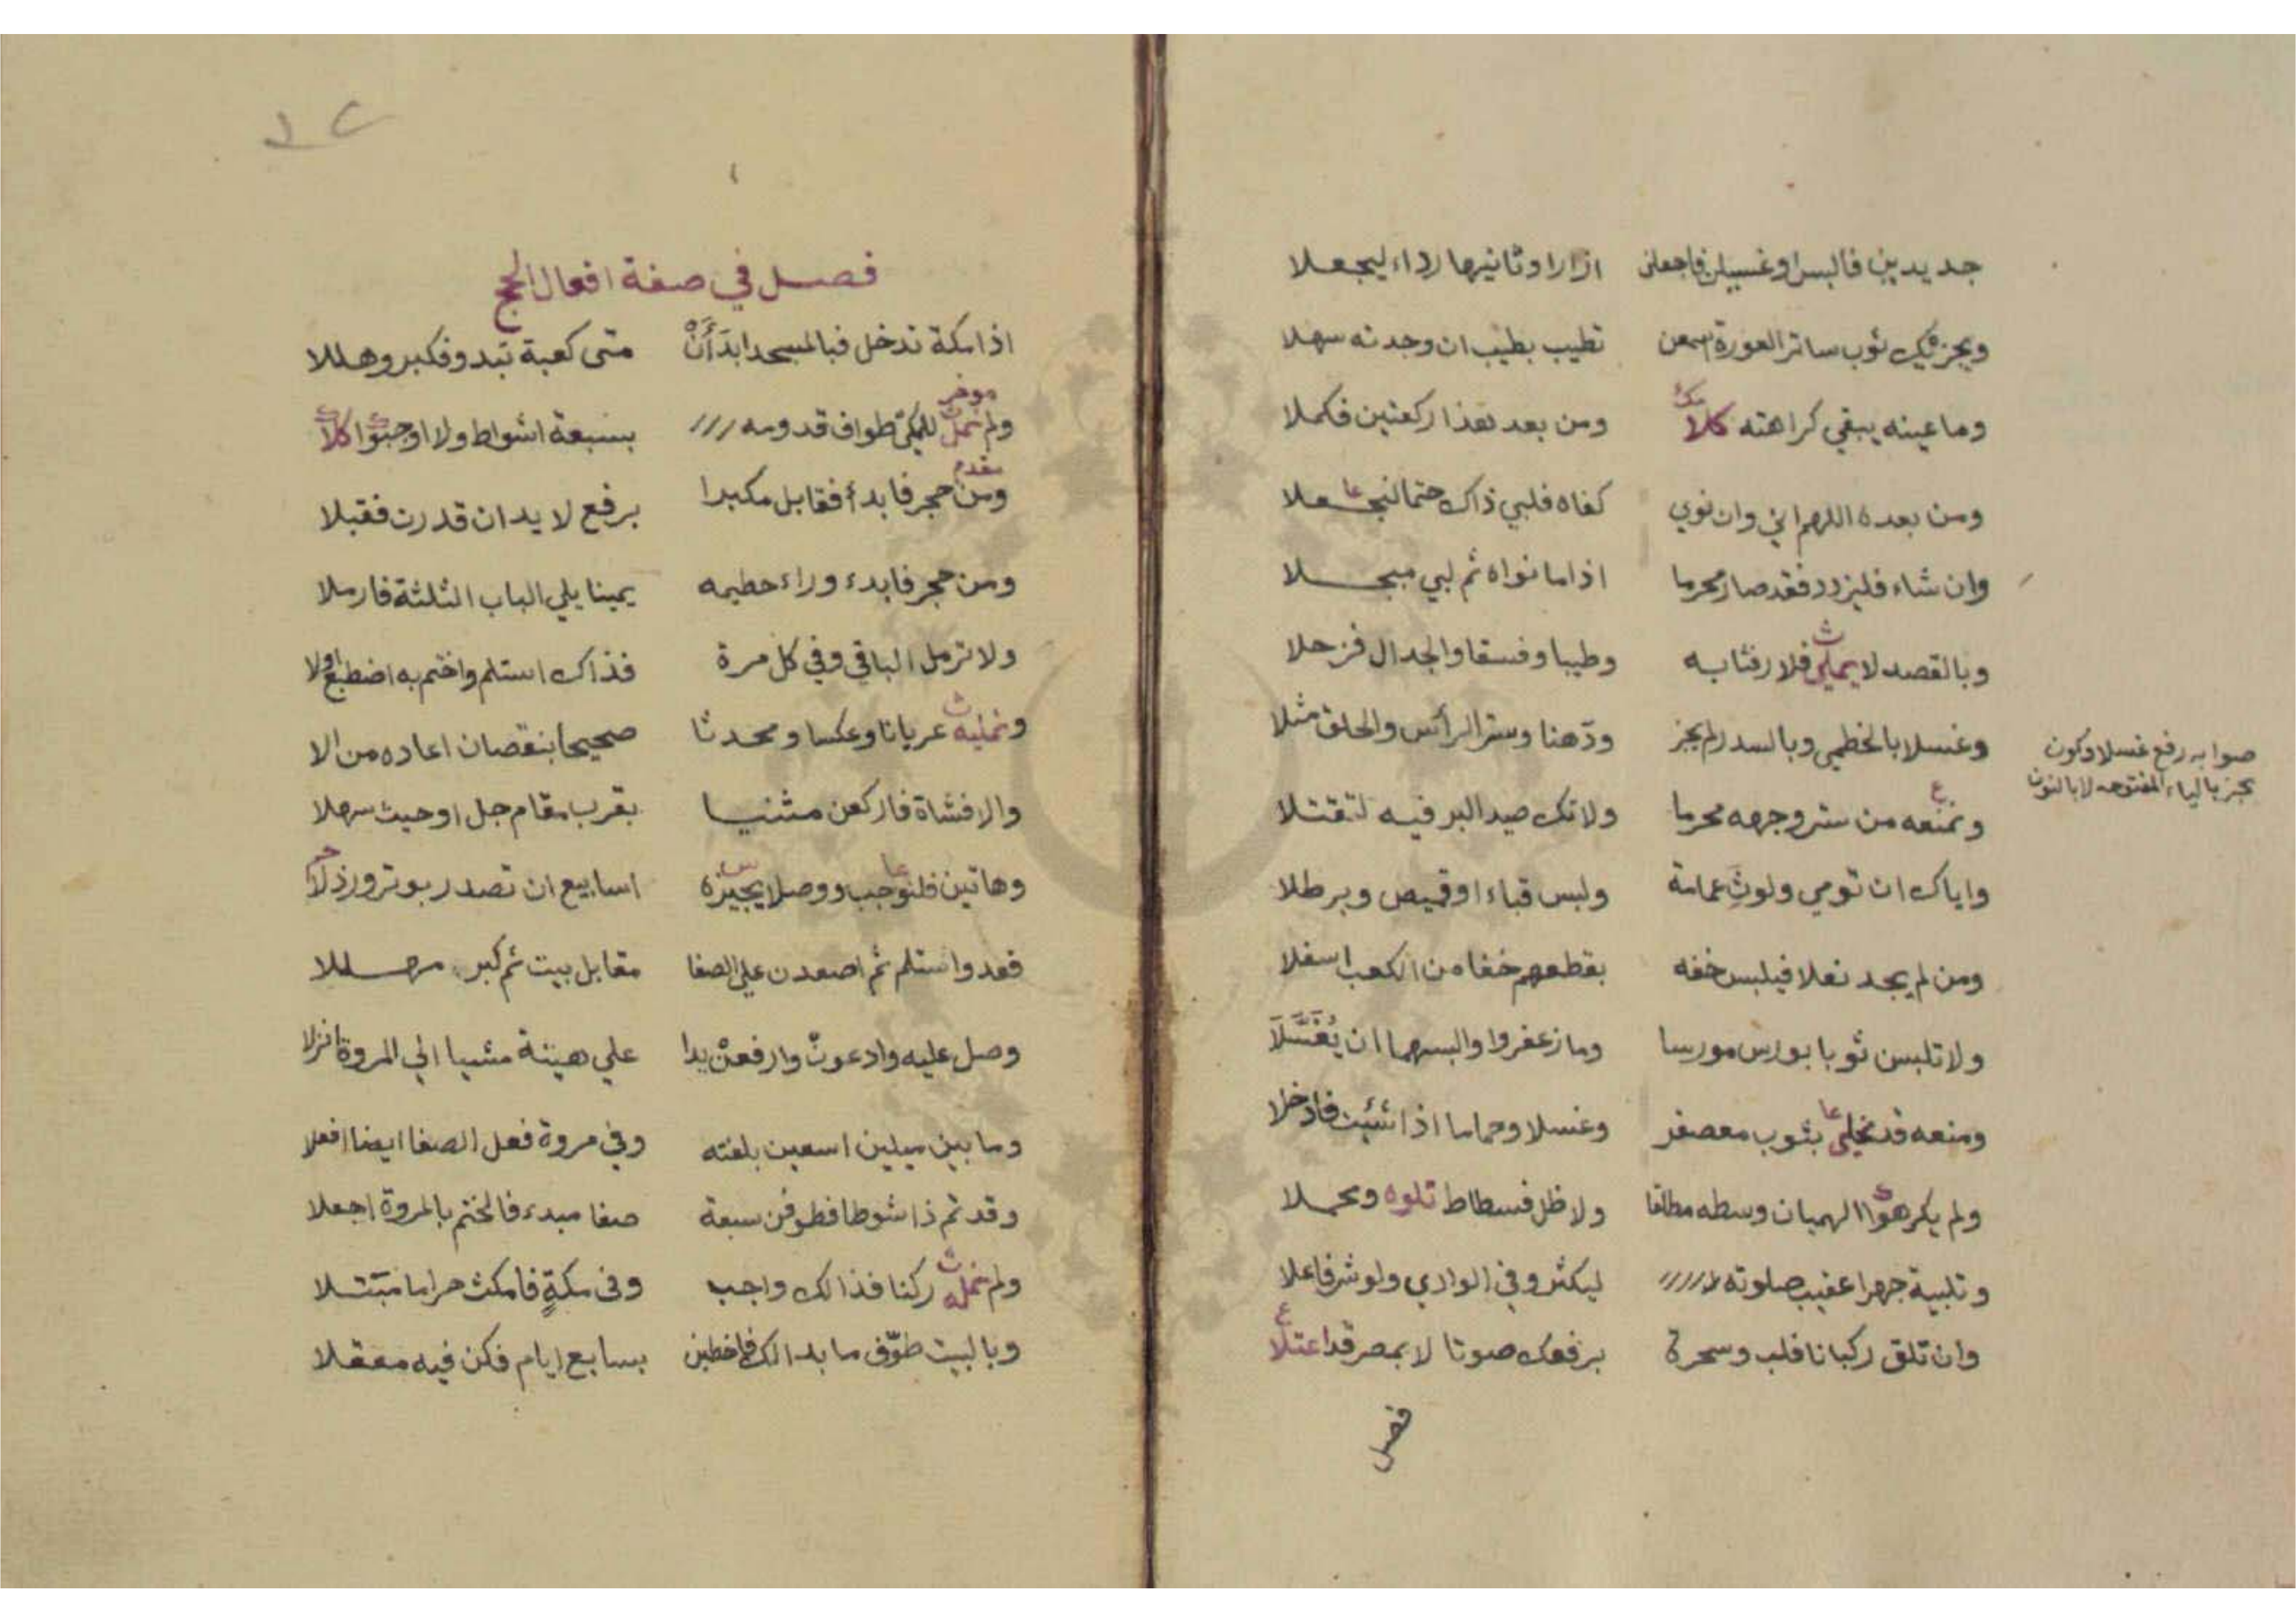 جديدين فالبس او غسيلين فاجعلن ازارا وثانيها رداء ليجعلا
ويجزيك ثوب ساتر العورة اسمعن تطيب بطيب ان وجدته سهلا
وما عينه يبقي كراهته كلا ومن بعد هذا ركعتين فكملا
ومن بعده اللهم اني وان نوي كفاه فلبي ذاك حتما لنجعلا
وان شاء فليزدد فقد صار محرما اذا ما نواه ثم لبي مبجلا
وبالقصد لا يملي فلا رفثا به وطيبا وفسقا والجدال فزحلا
وغسلا بالخطمي وبالسدر لم يجز ودهنا وستر الرأس والحلق مثلا
صوابه رفع غسلا وكون
يجز بالياء المفتوحه لا بالنون
ونمنعه من ستر وجهه محرما ولا تك صيد البر فيه لتقتلا
واياك ان تومي ولوث عمامة ولبس قباء او قميص وبرطلا
ومن لم يجد نعلا فيلبس خفه بقطعهم خفاه من الكعب اسفلا
ولا تلبس ثوبا بورس مورسا وما زعفروا والبسهما ان يُغَسَّلَا
ومنعه قد نخلي بثوب معصفر وغسلا وحماما اذا شئت فادخلا
ولم يكرهوا الهميان وسطه مطلقا ولا ظل فسطاط تلوه ومحملا
وتلبية جهرا عقيب صلوته ليكثر وفي الوادي ولو شرفا علا
وان تلق ركبانا فلب وسحرة برفعك صوتا لا بمصر قد اعتلا
فصل
١٢
فصل في صفة افعال الحج
اذا مكة تدخل فبالمسجد ابدَأَنْ متى كعبة تبدو فكبر وهللا
موخر
ولم نمل للمكي طواف قدومه بسبعة اشواط ولا اوجبوا كلا
مقدم
ومن حجر فابدأ فقابل مكبرا برفع لا يد ان قدرت فقبلا
ومن حجر فابدء وراء حطيمه يمينا يلي الباب الثلثة فارملا
ولا ترمل الباقي وفي كل مرة فذاك استلم واختم به اضطبع اولا
ونمليه عريانا وعكسا ومحدثا صحيحا بنقصان اعاده من الا
والا فشاة فاركعن مثنيا بقرب مقام جل او حيث سهلا
وهاتين فلنوجب ووصلا يجيزه اسابيع ان تصدر بوتر وذا
فعد واستلم ثم اصعدن علي الصفا مقابل بيت ثم كبر مهللا
وصل عليه وادعون وارفعن يدا علي هينة مشيا الي المروة انزلا
وما بين ميلين اسعين بلغته وفي مروة فعل الصفا ايضا افعلا
وقد تم ذا شوطا فطوفن سبعة صفا مبدء فالختم بالمروة اجعلا
ولم نمله ركنا فذالك واجب وفى مكةٍ فامكث حراما مبتلا
وبالبيت طوّف ما بدا لك فاخطبن بسابع ايام فكن فيه معقلا